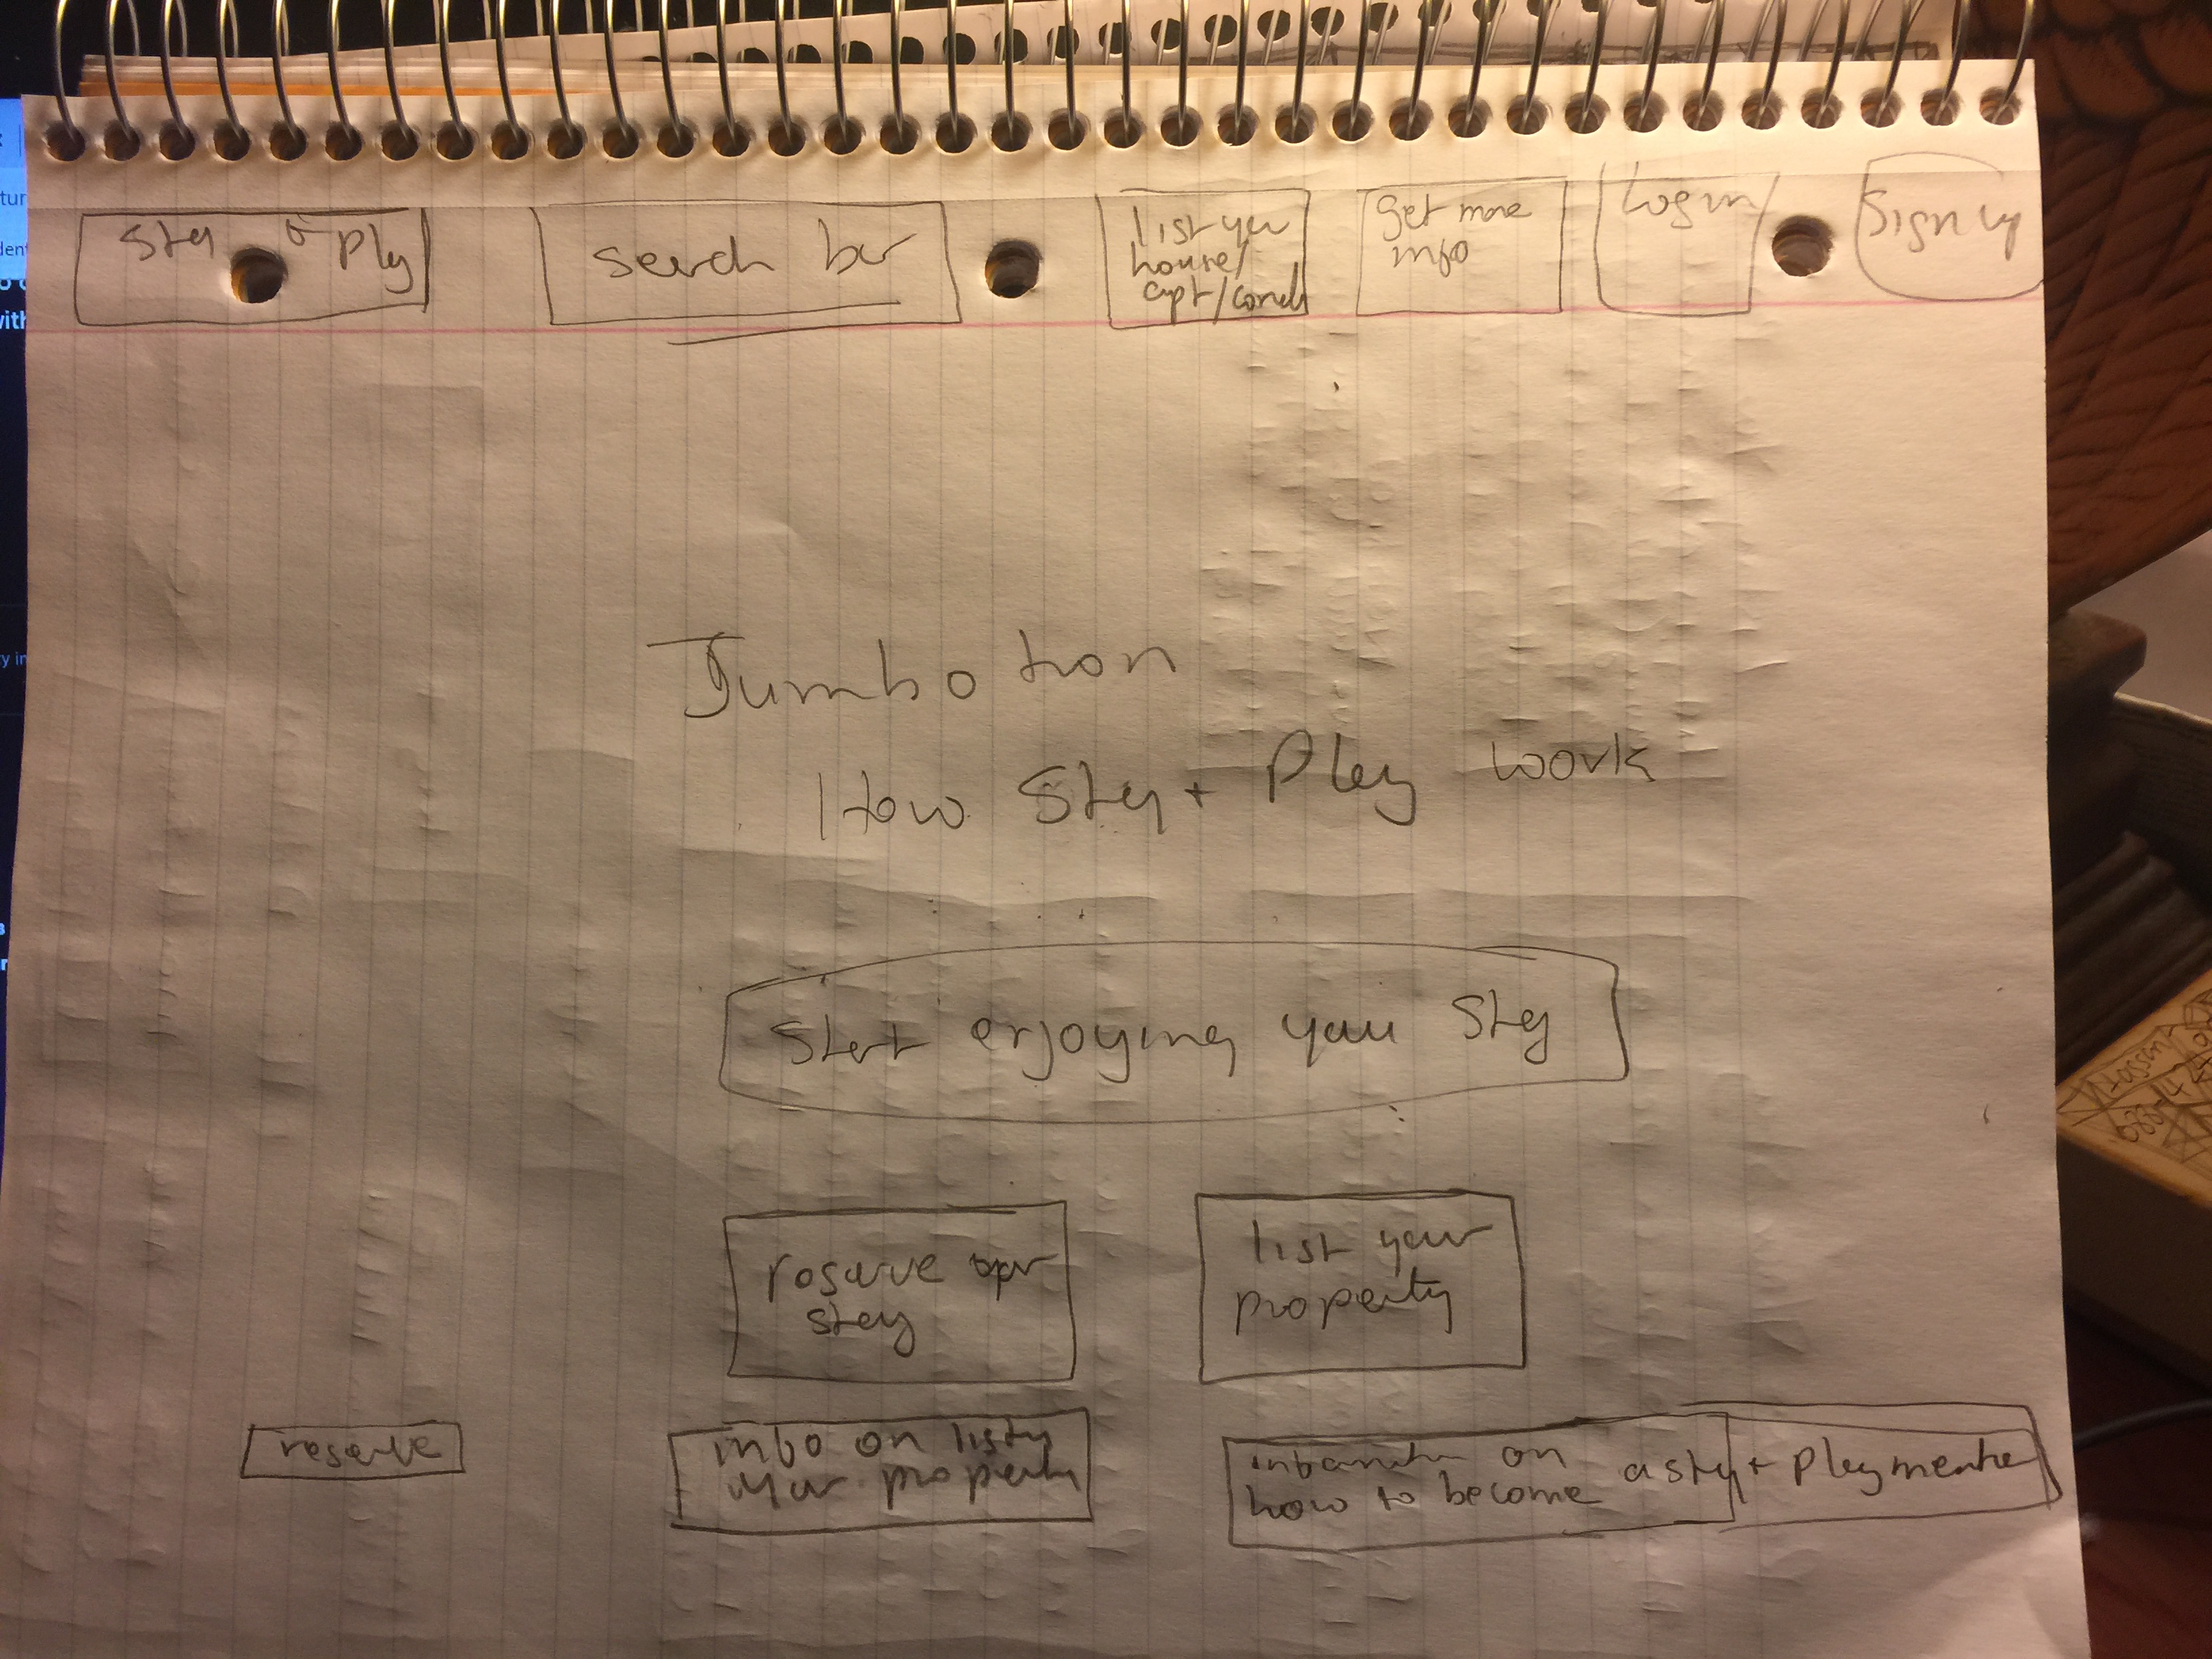 Stay + Play
search bar
list your
house/
apt/condo
get more
info
Login/
Sign up
Jumbotron
How Stay + Play work
Start enjoying your Stay
list your
property
stay
reserve
info on
your property
on
how to become a stay + play member